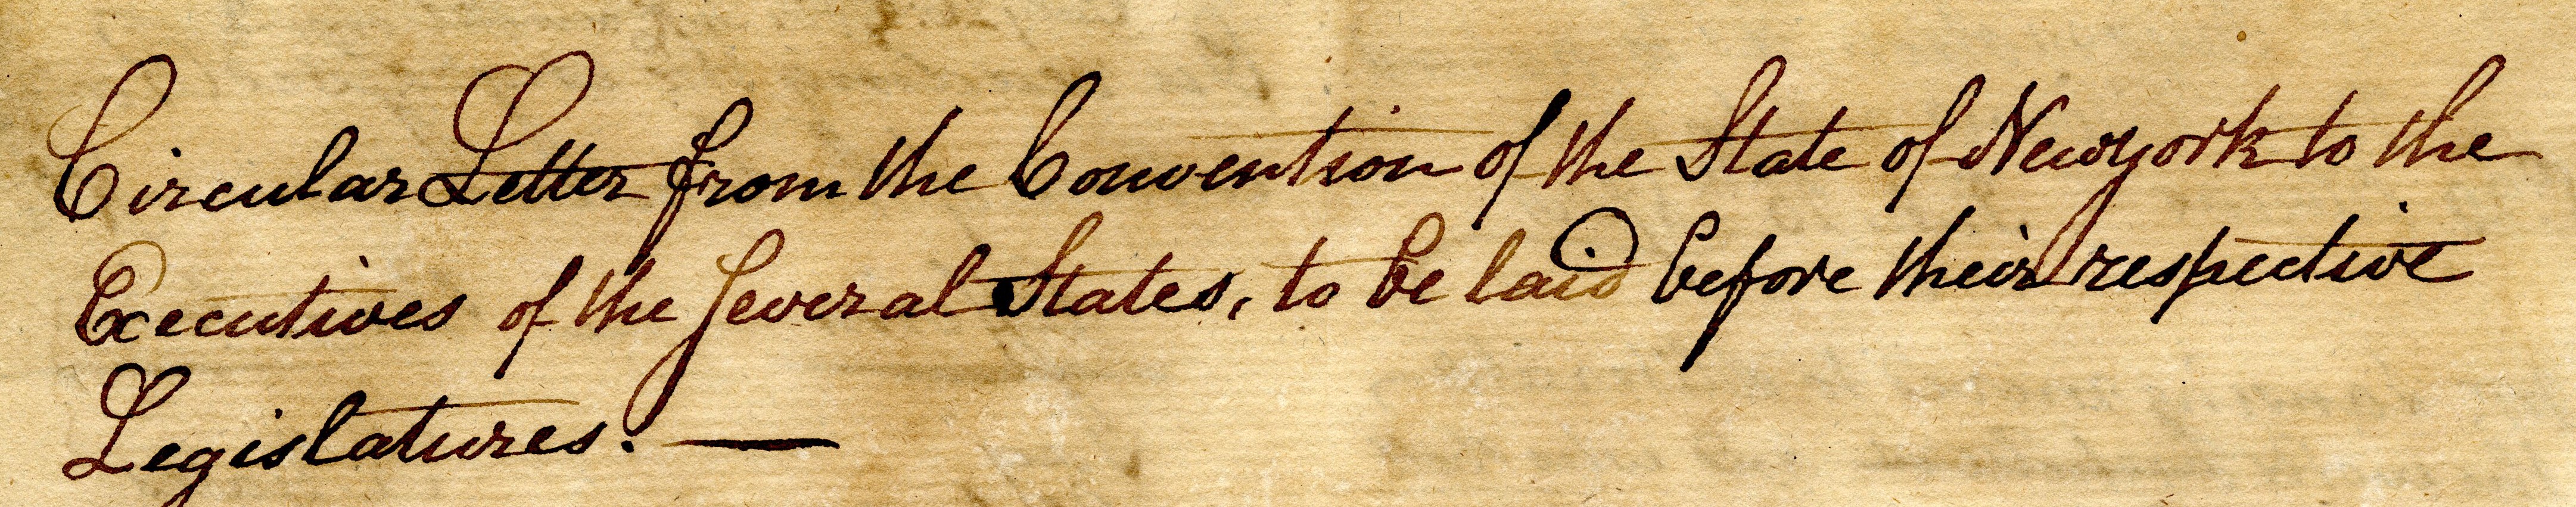 Circular Letter from the Convention of the State of Newyork to the
Executives of the several States, to be laid before their respective
Legislatures. —